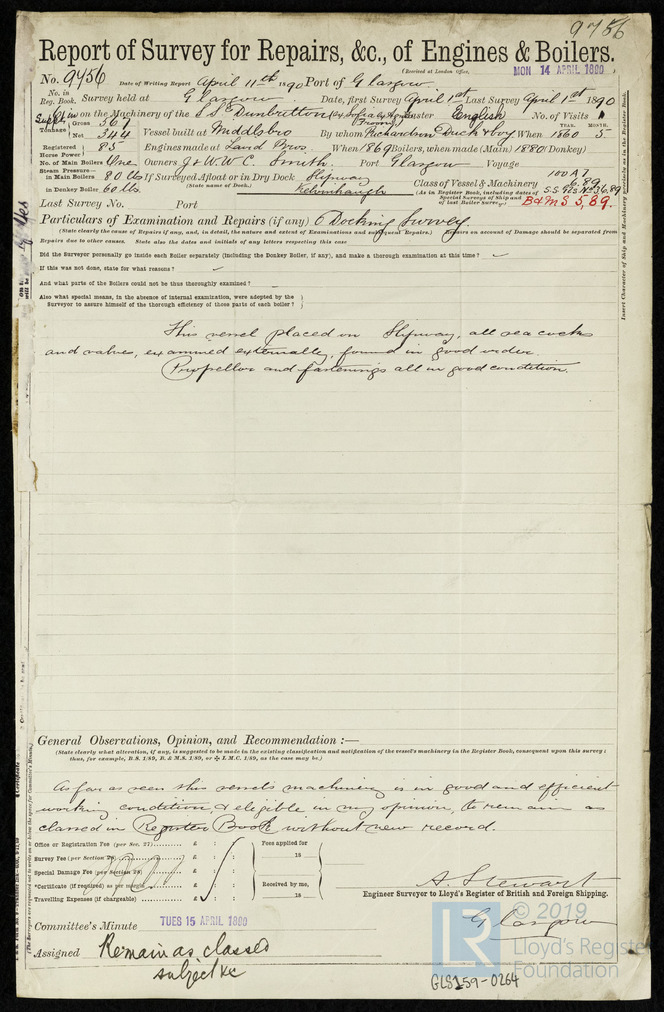 9756
Report of Survey for Repairs, &c., of Engines & Boilers.
(Received at London Office,
MON 14 APRIL 1890
No. 9456 Date of Writing Report April 11th 1890 Port of Glasgow
No. in Reg. Book. Survey held at Glasgow Date, first Survey April 1st Last Survey April 1st 1890
on the Machinery of the S.S. "Dunbritton" English No. of Visits 1
Tonnage Gross 567 Net 344 Vessel built at Middlesbro By whom Richardson Duck & Coy When 1860 5
YEAR. MONTH.
Registered Horse Power 85 Engines made at Laird Bros. When 1869 Boilers, when made (Main) 1880 (Donkey)
No. of Main Boilers One Owners J & W.W C. Smith. Port Glasgow Voyage
Steam Pressure— in Main Boilers 80 lbs If Surveyed Afloat or in Dry Dock Slipway
(State name of Dock.) Kelvinhaugh
in Donkey Boiler 60 lbs.
Class of Vessel & Machinery 100 A1
(As in Register Book, including dates of Special Surveys of Ship and of last Boiler Survey)
6.89
B & M S 5,89.
Last Survey No. Port
Particulars of Examination and Repairs (if any) Docking Survey.
(State clearly the cause of Repairs if any, and, in detail, the nature and extent of Examinations and subsequent Repairs.) Repairs on account of Damage should be separated from
Repairs due to other causes. State also the dates and initials of any letters respecting this case
Did the Surveyor personally go inside each Boiler separately (including the Donkey Boiler, if any), and make a thorough examination at this time?
If this was not done, state for what reasons?
And what parts of the Boilers could not be thus thoroughly examined?
Also what special means, in the absence of internal examination, were adopted by the
Surveyor to assure himself of the thorough efficiency of those parts of each boiler?
This vessel placed on Slipway, all sea cocks
and valves, examined externally, found in good order.
Propellor and fastenings all in good condition.
General Observations, Opinion, and Recommendation :—
(State clearly what alteration, if any, is suggested to be made in the existing classification and notification of the vessel's machinery in the Register Book, consequent upon this survey;
thus, for example, B.S. 1/89, B. & M.S. 1/89, or ✠ L.M.C. 1/89, as the case may be.)
As far as seen this vessels machinery is in good and efficient
working condition & eligible in my opinion, to remain as
classed in Register Book without new record.
Office or Registration Fee (per Sec. 27) £ : :
Survey Fee (per Section 28) £ : :
Special Damage Fee (per Section 28) £ : :
*Certificate (if required) as per margin £ : :
Travelling Expenses (if chargeable) £ : :
Fees applied for
18
Received by me,
18
A. Stewart
Engineer Surveyor to Lloyd's Register of British and Foreign Shipping.
Glasgow
Committee's Minute TUES 15 APRIL 1890
Assigned Remain as classed
subject &c
© 2019
Lloyd's Register
Foundation
GLS159-0264